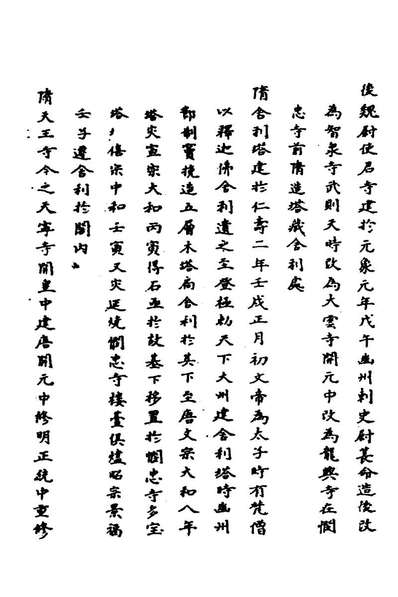 後魏尉使君寺建於元象元年戊午幽州刺史尉萇命造後改
為智泉寺武則天時改為大雲寺開元中改為龍興寺在憫
忠寺前隋造塔藏舍利處
隋舍利塔建於仁壽二年壬戌正月初文帝為太子時有梵僧
以釋迦佛舍利遺之至登極勅天下大州建舍利塔時幽州
即制竇撓造五層木塔扃舍利於其下至唐文宗大和八年
塔災宣宗大和丙寅得石函於故基下移置於憫忠寺多寶
塔〻僖宗中和壬寅又災延燒憫忠寺樓臺俱燼昭宗景福
壬子遷舍利於閣內〻
隋天王寺今之天寧寺開皇中建唐開元中修明正統中重修